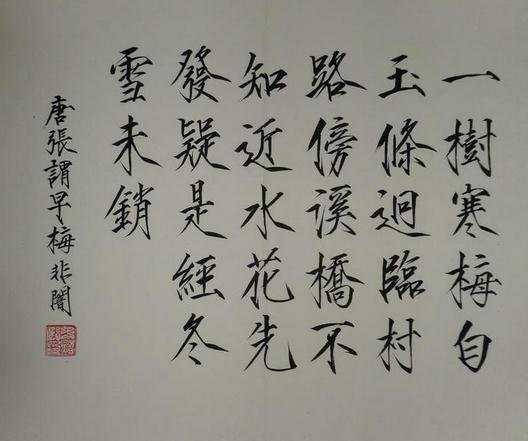 一樹寒梅白
玉條迥臨村
路傍溪橋不
知近水花先
發疑是經冬
雪未銷
唐張謂早梅非闇